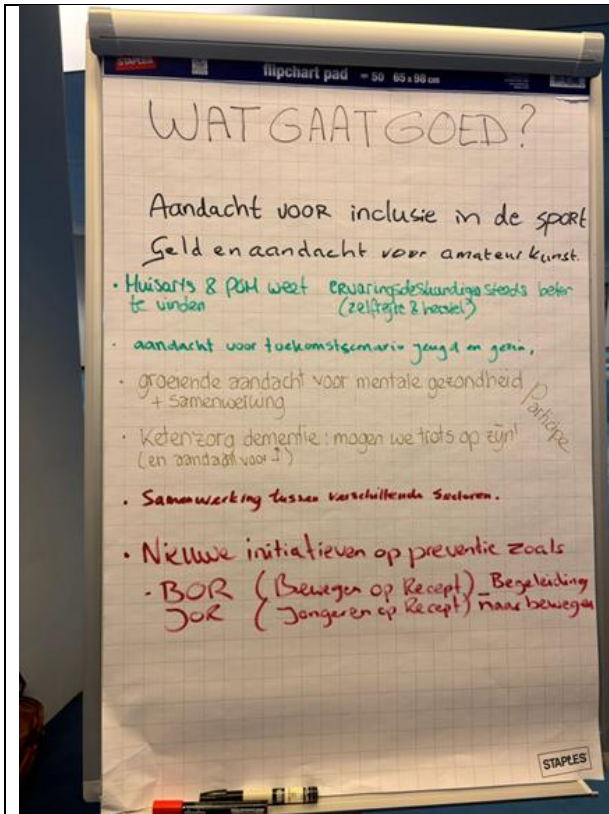 STAPLES
flipchart pad = 50 65 x 98 cm
WAT GAAT GOED?
Aandacht VOOR inclusie in de sport
Geld en aandacht voor amateurkunst.
• Huisarts & POH weet ervaringsdeskundige steeds beter
te vinden (zelfregie & herstel)
• aandacht voor toekomstscenario jeugd en gezin,
• groeiende aandacht voor mentale gezondheid
+ samenwerking
• Ketenzorg dementie: mogen we trots op zijn!
(en aandacht voor
• Samenwerking tussen verschillende Sectoren.
• Nieuwe initiatieven op preventie zoals
• BOR (Bewegen op Recept) _ Begeleiding
JOR (Jongeren op Recept) naar bewegen
STAPLES